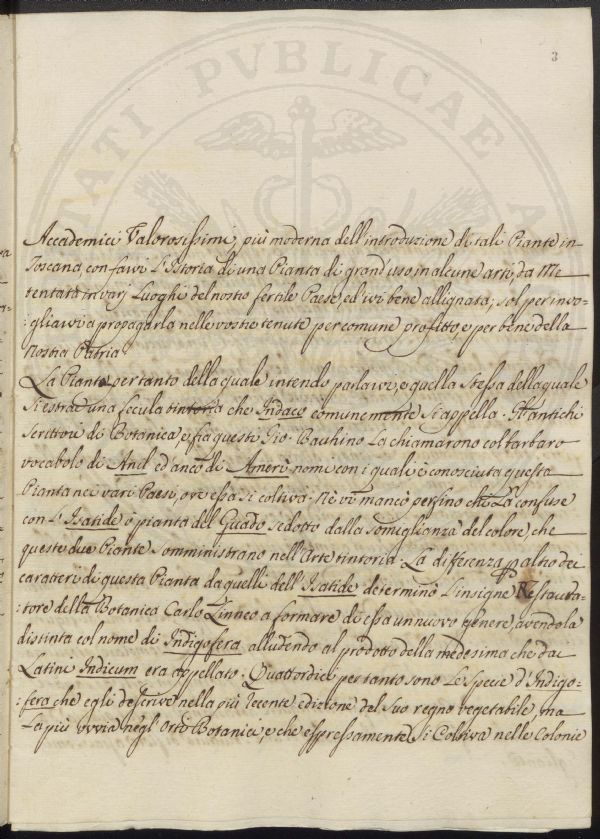 3
TATI PVBLICAE
Accademici Valorosissimi, più moderna dell'introduzione di tali Piante in
Toscana, con farvi l'Istoria di una Pianta di grand'uso in alcune arti, da Me
tentata in varj Luoghi del nostro fertile Paese, ed ivi bene allignata, sol per invo=
:gliarvi a propagarla nelle vostre tenute per comune profitto, e per bene della
Nostra Patria.
La Pianta pertanto della quale intendo parlarvi, è quella stessa dalla quale
si estrae una fecula tintoria che Indaco comunemente si appella. Gl'antichi
scrittori di Botanica, e fra questi Gio. Bauhino la chiamarono col barbaro
vocabolo di Anil ed anco di Amerì nomi con i quali è conosciuta questa
Pianta nei varj Paesi, ove essa si coltiva. Nè vi mancò persino chi La confuse
con l'Isatide ò pianta del Guado sedotto dalla somiglianza del colore, che
queste due Piante somministrano nell'Arte tintoria. La differenza altresì dei
caratteri di questa Pianta da quelli dell'Isatide determinò l'insigne Restaura=
:tore della Botanica Carlo Linneo a formare di essa un nuovo genere, avendola
distinta col nome di Indigofera alludendo al prodotto della medesima che dai
Latini Indicum era appellato. Quattordici per tanto sono le specie d'Indigo=
:fera che egli descrive nella più recente edizione del suo regno vegetabile, ma
la più ovvia negl'Orti Botanici, e che espressamente si coltiva nelle Colonie